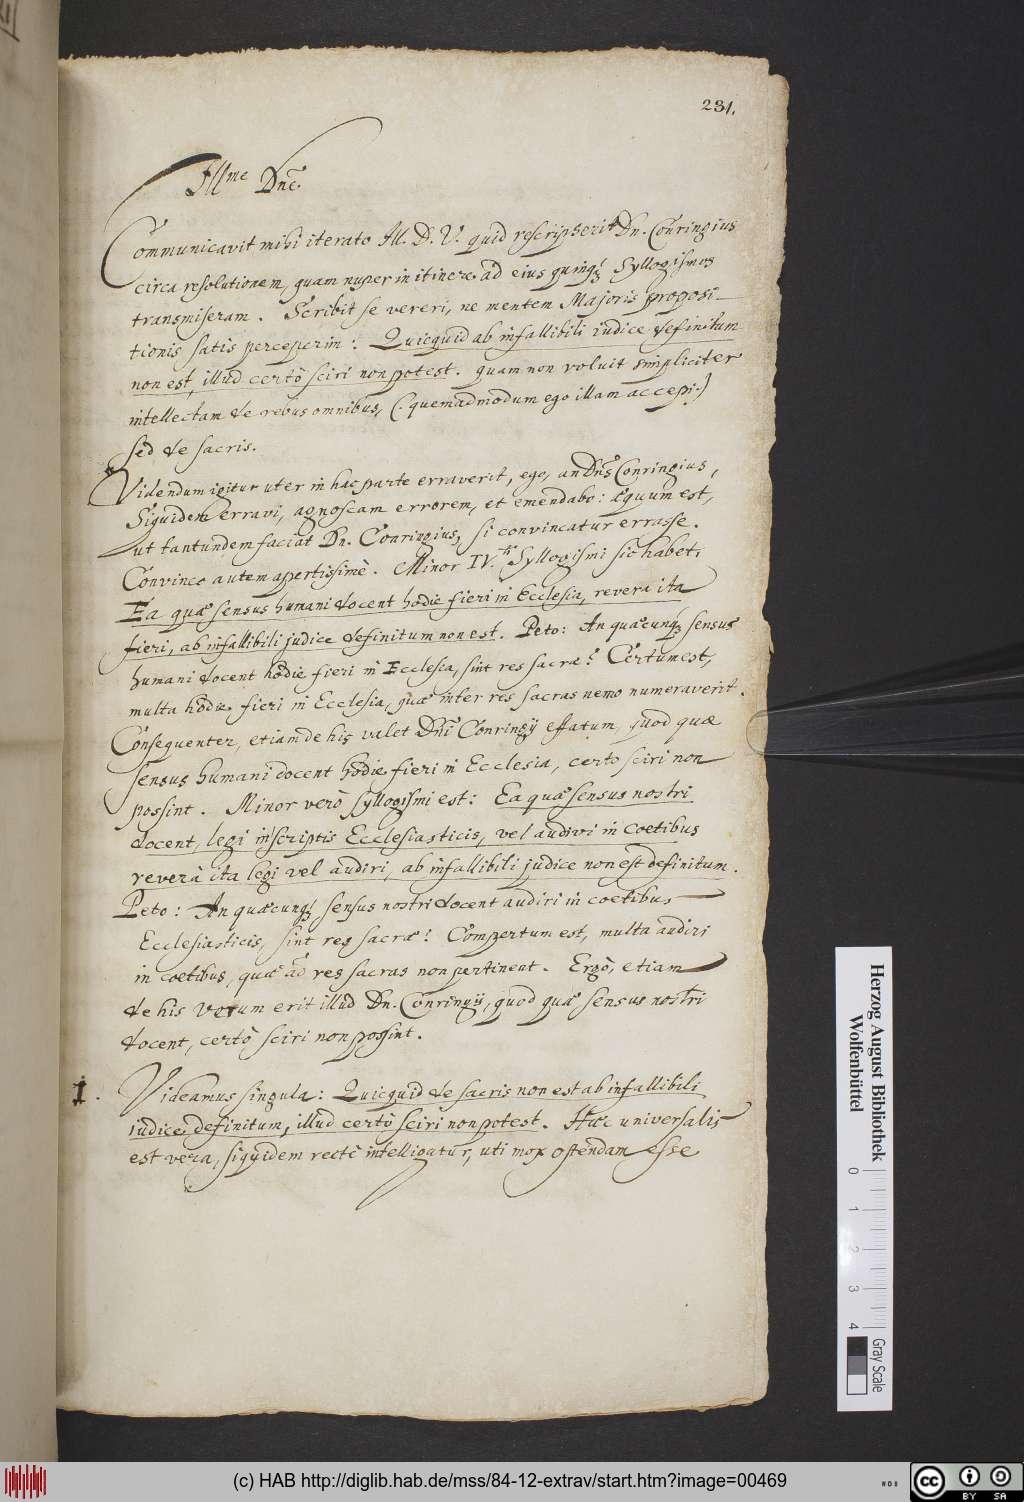 231.
Illme Dne.
Communicavit mihi iterato Ill. D. V. quid rescripserit Dn. Conringius
circa resolutionem, quam nuper in itinere ad eius quinq; Syllogismos
transmiseram. Scribit se vereri, ne mentem Majoris proposi-
tionis satis perceperim: Quicquid ab infallibili iudice definitum
non est, illud certò sciri non potest. quam non voluit simpliciter
intellectam de rebus omnibus, (quemadmodum ego illam accepi.)
sed de sacris.
Videndum igitur uter in hac parte erraverit, ego, an Dns Conringius,
Siquidem erravi, agnoscam errorem, et emendabo: æquum est,
ut tantundem faciat Dn. Conringius, si convincatur errasse.
Convinco autem apertissimè. Minor IV.ti Syllogismi sic habet,
Ea quæ sensus humani docent hodie fieri in Ecclesia, revera ita
fieri, ab infallibili judice definitum non est. Peto: An quæcunq; sensus
humani docent hodie fieri in Ecclesia, sint res sacræ? Certum est,
multa hodie fieri in Ecclesia, quæ inter res sacras nemo numeraverit.
Consequenter, etiam de his valet Dni Conringij effatum, quod quæ
sensus humani docent hodie fieri in Ecclesia, certo sciri non
possint. Minor verò syllogismi est: Ea quæ sensus nostri
docent, legi in scriptis Ecclesiasticis, vel audivi in coetibus
reverà ita legi vel audiri, ab infallibili judice non est definitum.
Peto: An quæcunq; sensus nostri docent audiri in coetibus
Ecclesiasticis, sint res sacræ? Compertum est, multa audiri
in coetibus, quæ ad res sacras non pertinent. Ergò, etiam
de his verum erit illud Dn. Conringij, quod quæ sensus nostri
docent, certò sciri non possint.
1. Videamus singula: Quicquid de sacris non est ab infallibili
iudice definitum, illud certò sciri non potest. Hæc universalis
est vera, siquidem rectè intelligatur, uti mox ostendam esse
Herzog August Bibliothek
Wolfenbüttel
0 1 2 3 4
Gray Scale
(c) HAB http://diglib.hab.de/mss/84-12-extrav/start.htm?image=00469
WDB
cc BY SA